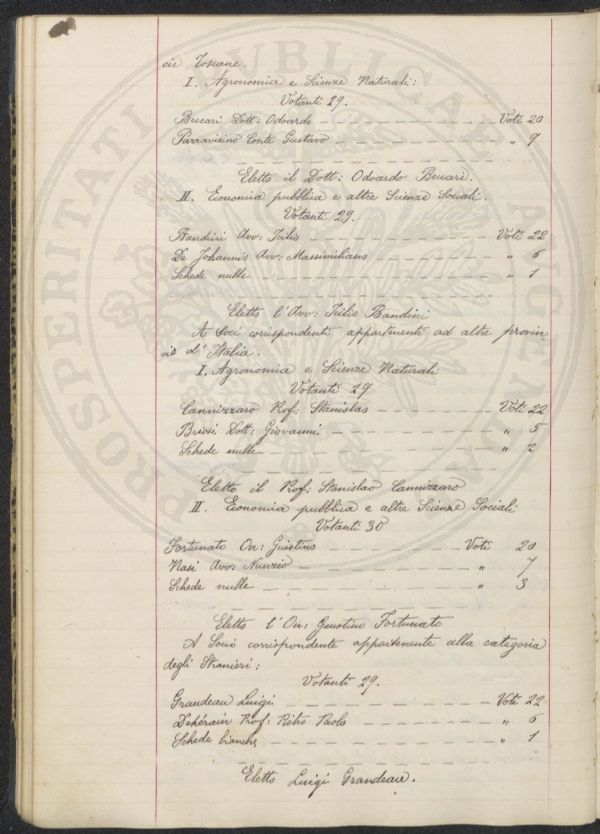 cie Toscane.
I. Agronomia e Scienze Naturali:
Votanti 29.
Beccari Dott: Odoardo — Voti 20
Parravicino Conte Gustavo — " 9
Eletto il Dott: Odoardo Beccari.
II. Economia pubblica e altre Scienze Sociali.
Votanti 29.
Bandini Avv: Icilio — Voti 22
De Johannis Avv: Massimiliano — " 6
Schede nulle — " 1
Eletto l'Avv: Icilio Bandini
A Soci corrispondenti appartenenti ad altre provin
cie d'Italia.
I. Agronomia e Scienze Naturali
Votanti 29
Cannizzaro Prof: Stanislao — Voti 22
Briosi Dott: Giovanni — " 5
Schede nulle — " 2
Eletto il Prof: Stanislao Cannizzaro
II. Economia pubblica e altre Scienze Sociali
Votanti 30
Fortunato On: Giustino — Voti 20
Nasi Avv: Nunzio — " 7
Schede nulle — " 3
Eletto l'On: Giustino Fortunato
A Socio corrispondente appartenente alla categoria
degli Stranieri:
Votanti 29.
Grandeau Luigi — Voti 22
Dehérain Prof: Pietro Paolo — " 6
Schede bianche — " 1
Eletto Luigi Grandeau.
PROSPERITATI PUBLICAE AUGENDAE